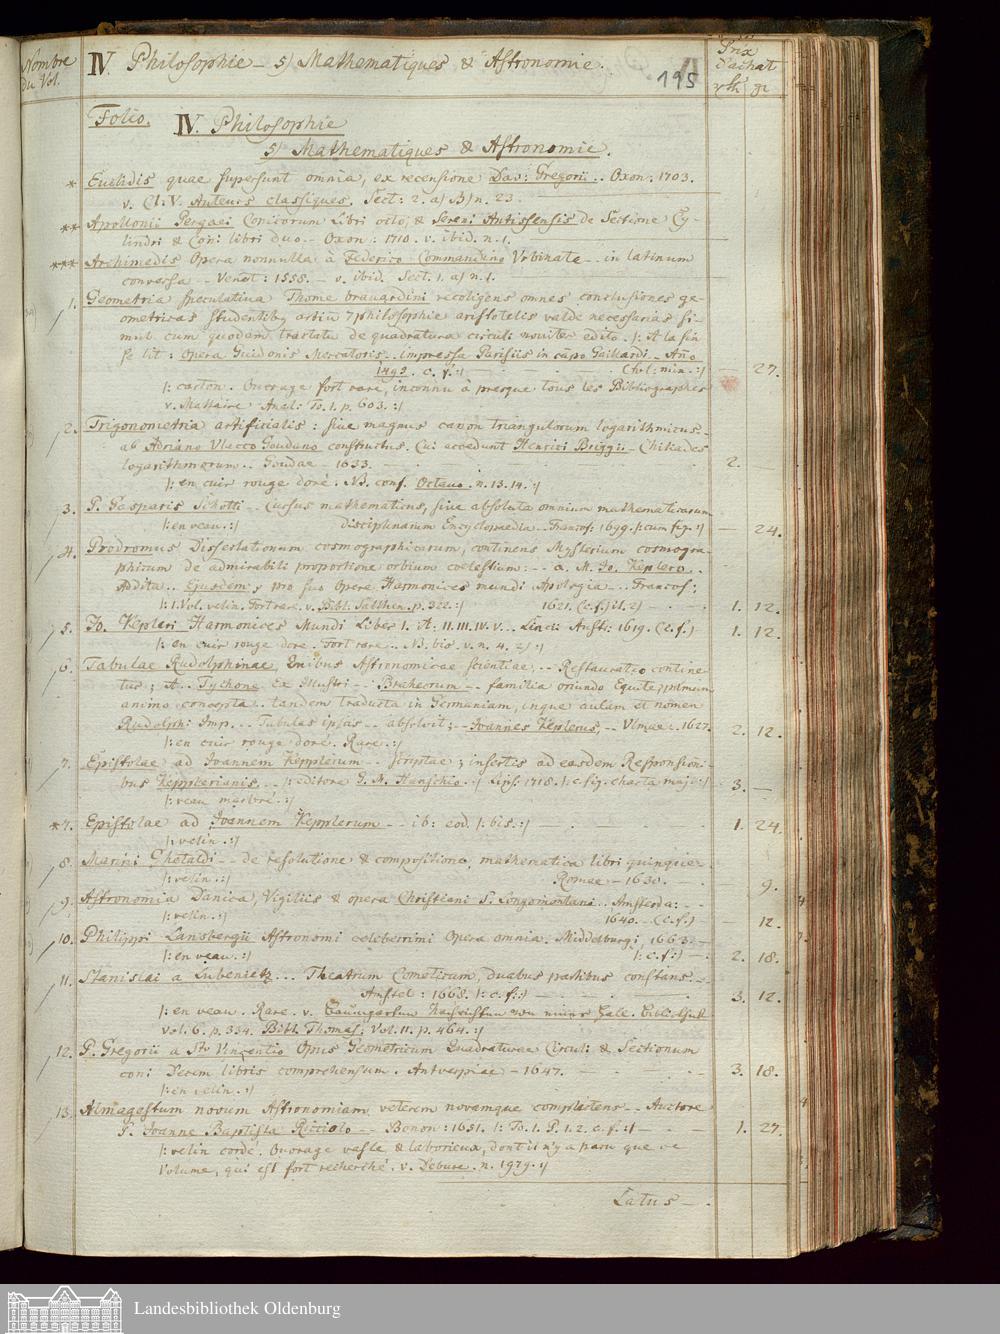 Nombre du Vol.
IV. Philosophie – 5) Mathematiques & Astronomie.
195
Prix d'achat
rth gr
Folio. IV. Philosophie
5) Mathematiques & Astronomie.
* Euclidis quae supersunt omnia, ex recensione Dav: Gregorii .. Oxon: 1703.
v. Cl: V. Auteurs classiques. Sect: 2. a) B) n. 23.
** Apollonii Pergaei Conicorum Libri octo, & Sereni Antissensis de Sectione Cy-
lindri & Coni libri duo – Oxon: 1710. v. ibid. n. 1.
*** Archimedis Opera nonnulla à Federico Commandino Urbinate – in latinum
conversa – Venet: 1558. – v. ibid. Sect. 1. a) n. 1.
1. Geometria speculativa Thome bravardini recoligens omnes conclusiones ge-
ometricas studentibus artiū & philosophie aristotelis valde necessarias si-
mul cum quodam tractatu de quadratura circuli noviter edito. /: A la fin
se lit: Opera Guidonis Mercatoris impressa Parisiis in cāpo Gaillardi – Año
1495. c. f. :/ (Chl: min. :/ – 27.
/: carton. Ouvrage fort rare, inconnu à presque tous les Bibliographes
v. Mattaire Anal: To. 1. p. 603. :/
2. Trigonometria artificialis: sive magnus canon triangulorum logarithmicus –
ab Adriano Vlacco Goudano constructus. Cui accedunt Henrici Briggii – Chiliades
logarithmorum .. Goudae – 1633. 2. –
/: en cuir rouge doré. NB. conf. Octavo. n. 13. 14. :/
3. P. Gasparis Schotti – Cursus mathematicus, sive absoluta omnium mathematicarum
/: en veau. :/ disciplinarum Encyclopaedia – Francof: 1699. /: cum fig. :/ – 24.
4. Prodromus Dissertationum cosmographicarum, continens Mysterium cosmogra-
phicum de admirabili proportione orbium coelestium: – a. M. Jo. Keplero ..
Addita .. Ejusdem, pro suo Opere Harmonices mundi Apologia – Francof:
/: 1. Vol. velin. Fort rare. v. Bibl. Salthen. p. 322. :/ 1621. (c. fig. 2) – 1. 12.
5. Jo. Kepleri Harmonices Mundi Liber I. It. II. III. IV. V. .. Linci: Austr: 1619. (c. f.) 1. 12.
/: en cuir rouge doré. Fort rare. NB. bis. v. n. 4. 2) :/
6. Tabulae Rudolphinae, quibus Astronomicae scientiae, – Restauratio contine-
tur; A .. Tychone Ex Illustri – Braheorum – familia oriundo Equite, primum
animo concepta .. tandem traducta in Germaniam, inque aulam et nomen
Rudolphi Imp. .. Tabulas ipsas – absolvit; – Joannes Keplerus, – Ulmae .. 1627. 2. 12.
/: en cuir rouge doré. Rare. :/
7. Epistolae ad Joannem Kepplerum – scriptae; insertis ad easdem Responsioni-
bus Kepplerianis .. /: editore G. M. Hanschio :/ Lips. 1718. /: c. fig. charta maj: :/ 3. –
/: veau marbré. :/
*7. Epistolae ad Joannem Kepplerum – ib: eod. /: bis. :/ 1. 24.
/: velin. :/
8. Marini Ghetaldi – de resolutione & compositione mathematica libri quinque
/: velin. :/ Romae – 1630. – 9.
9. Astronomia Danica, Vigiliis & opera Christiani S. Longomontani .. Amsterda: –
/: velin. :/ 1640. (c. f.) – 12.
10. Philippi Lansbergii Astronomi celeberrimi Opera omnia. Middelburgi, 1663. –
/: en veau. :/ /: c. f. :/ – 2. 18.
11. Stanislai a Lubenietz ... Theatrum Cometicum, duabus partibus constans –
Amstel: 1668. /: c. f. :/ 3. 12.
/: en veau. Rare. v. Baumgarten Nachrichten von einer Hall. Bibliothek
vol. 6. p. 334. Bibl. Thomas. Vol. II. p. 464. :/
12. P. Gregorii a Sto Vincentio Opus Geometricum Quadraturae Circuli & Sectionum
coni Decem libris comprehensum. Antverpiae – 1647. 3. 18.
/: en velin. :/
13. Almagestum novum Astronomiam veterem novamque complectens – Auctore
P. Joanne Baptista Ricciolo – Bonon: 1651. /: To. 1. P. 1. 2. c. f. :/ 1. 27.
/: velin cordé. Ouvrage vaste & laborieux, dont il n'y a paru que ce
Volume, qui est fort recherché. v. Debure. n. 1979. :/
Latus –
Landesbibliothek Oldenburg